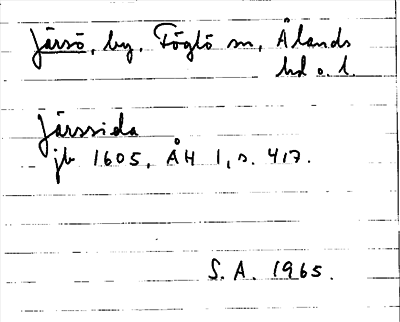 Järsö, by, Föglö sn, Ålands
hd o. l.
Järssida
jb 1605, ÅH 1, s. 417.
S. A. 1965.